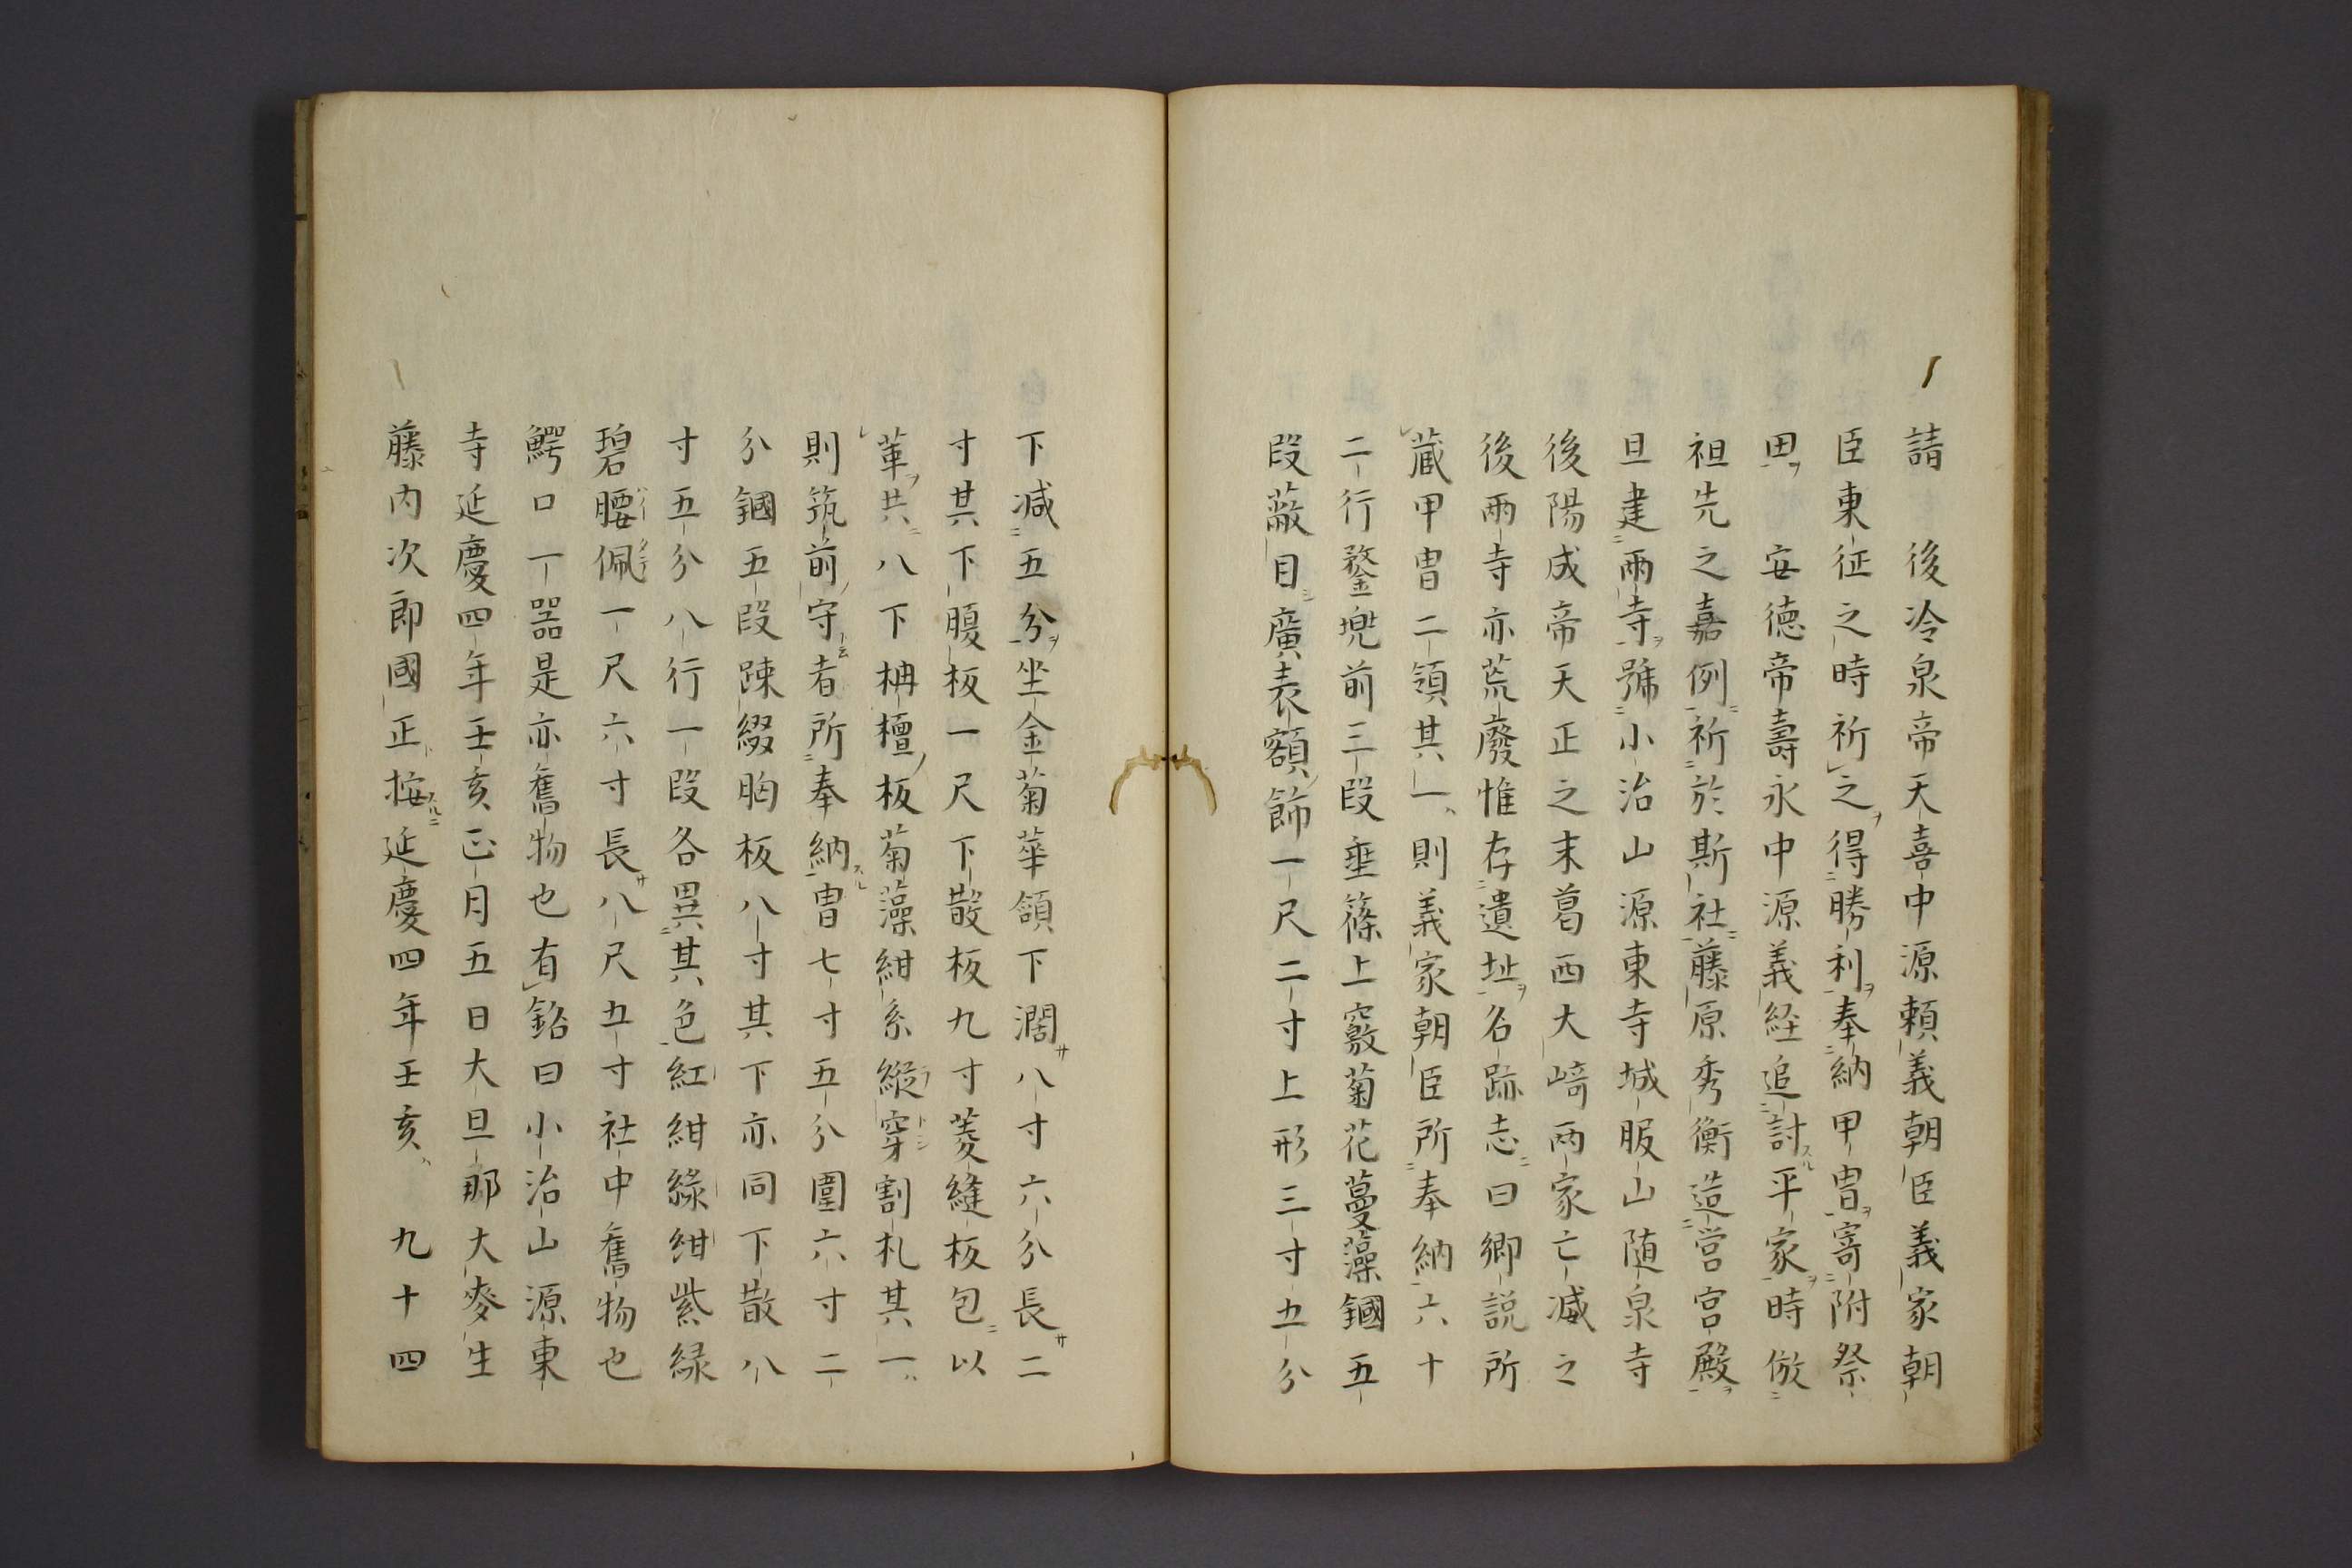 請　後冷泉帝天喜中源頼義朝臣義家朝
臣東征之時祈之得勝利奉納甲冑寄附祭
田　安德帝壽永中源義経追討平家時倣
祖先之嘉例祈於斯社藤原秀衡造営宮殿
且建兩寺號小治山源東寺城服山随泉寺
後陽成帝天正之末葛西大﨑兩家亡滅之
後兩寺亦荒廢惟存遺址名跡志曰郷説所
藏甲冑二領其一則義家朝臣所奉納六十
二行鍪兠前三段垂篠上竅菊花蔓藻錮五
段蔽目廣表額飾一尺二寸上形三寸五分
下减五分坐金菊華領下濶八寸六分長二
寸其下腹板一尺下散板九寸菱縫板包以
革共八下栴檀板菊藻紺糸縱穿割札其一
則筑前守者所奉納冑七寸五分圍六寸二
分錮五段踈綴胸板八寸其下亦同下散八
寸五分八行一段各異其色紅紺綠紺紫緑
碧腰佩一尺六寸長八尺五寸社中舊物也
鰐口一噐是亦舊物也有銘曰小治山源東
寺延慶四年壬亥正月五日大旦那大麥生
藤内次郎國正按延慶四年壬亥　九十四